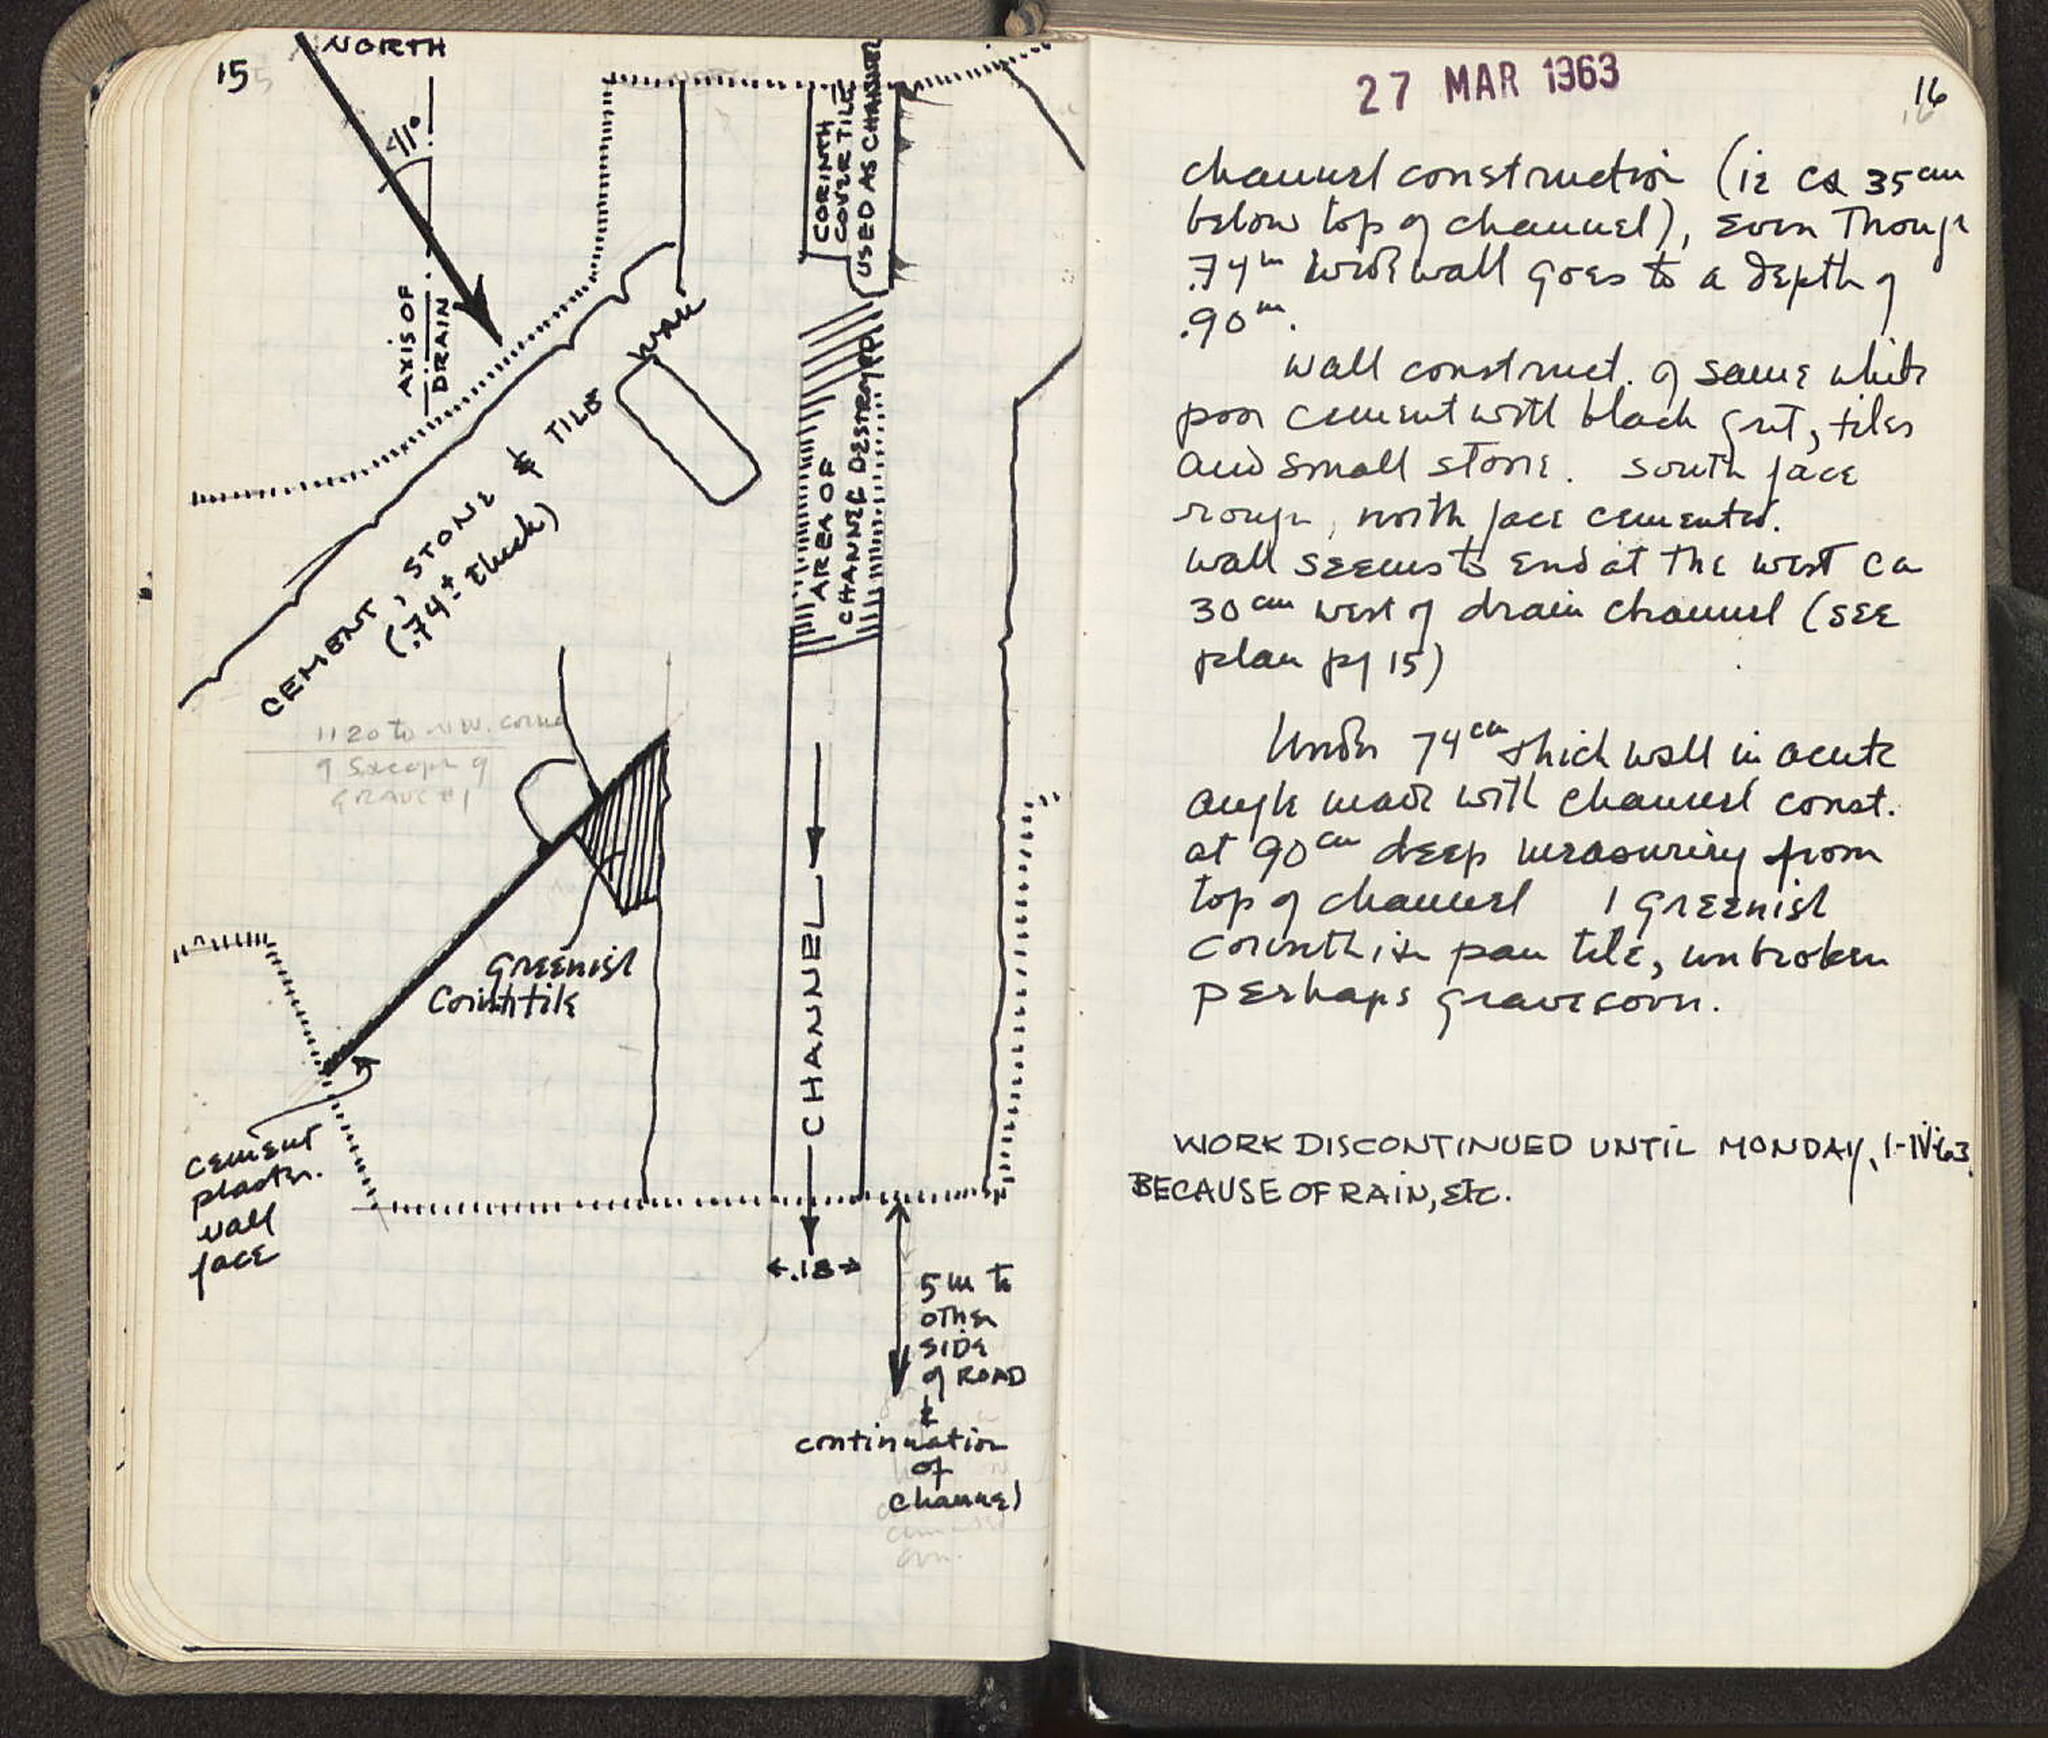 15
NORTH
41°
AXIS OF
DRAIN
CORINTH
COVER TILE
USED AS CHANNEL
AREA OF
CHANNEL DESTROYED
CEMENT, STONE & TILE WALL
(.74± thick)
1120 to N.W. corner
GRAVE #1
GREENISH
Corinth tile
CHANNEL
cement
plaster.
wall
face
.18
5m to
other
SIDE
of ROAD
&
continuation
of
channel
27 MAR 1963
16
channel construction (ie ca 35cm
below top of channel), even though
.74m wide wall goes to a depth of
.90m.
Wall construct. of same white
poor cement with black grit, tiles
and small stone. South face
rough, north face cemented.
Wall seems to end at the west ca
30cm west of drain channel (SEE
plan pg 15)
Under 74cm thick wall in acute
angle made with channel const.
at 90cm deep measuring from
top of channel 1 GREENISH
Corinthian pan tile, unbroken
perhaps grave cover.
WORK DISCONTINUED UNTIL MONDAY, 1-IV-63
BECAUSE OF RAIN, Etc.